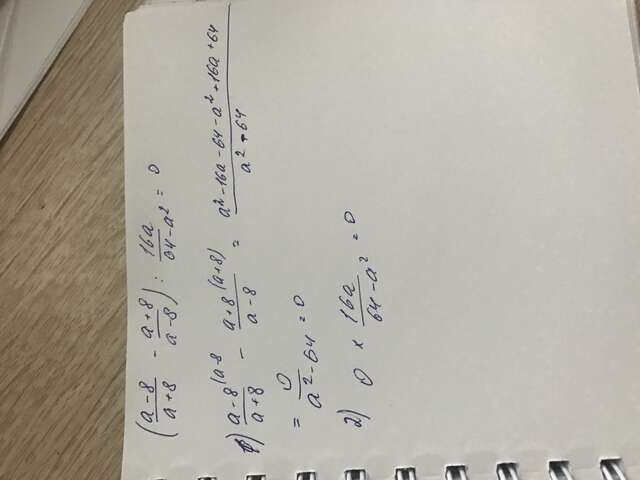 (a-8/a+8 - a+8/a-8) : 16a/64-a² = 0
1) a-8(a-8/a+8 - a+8(a+8)/a-8 = a²-16a-64-a²+16a+64/a²-64
= 0/a²-64 = 0
2) 0 × 16a/64-a² = 0